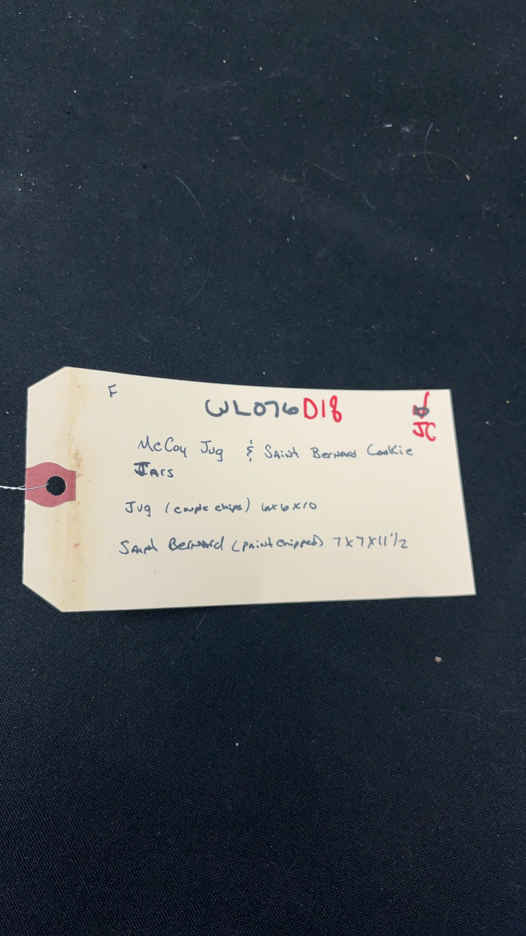 F
WL076 D18
JC
McCoy Jug & Saint Bernard Cookie
Jars
Jug (couple chips) 6x6x10
Saint Bernard (paint chipped) 7x7x11 1/2